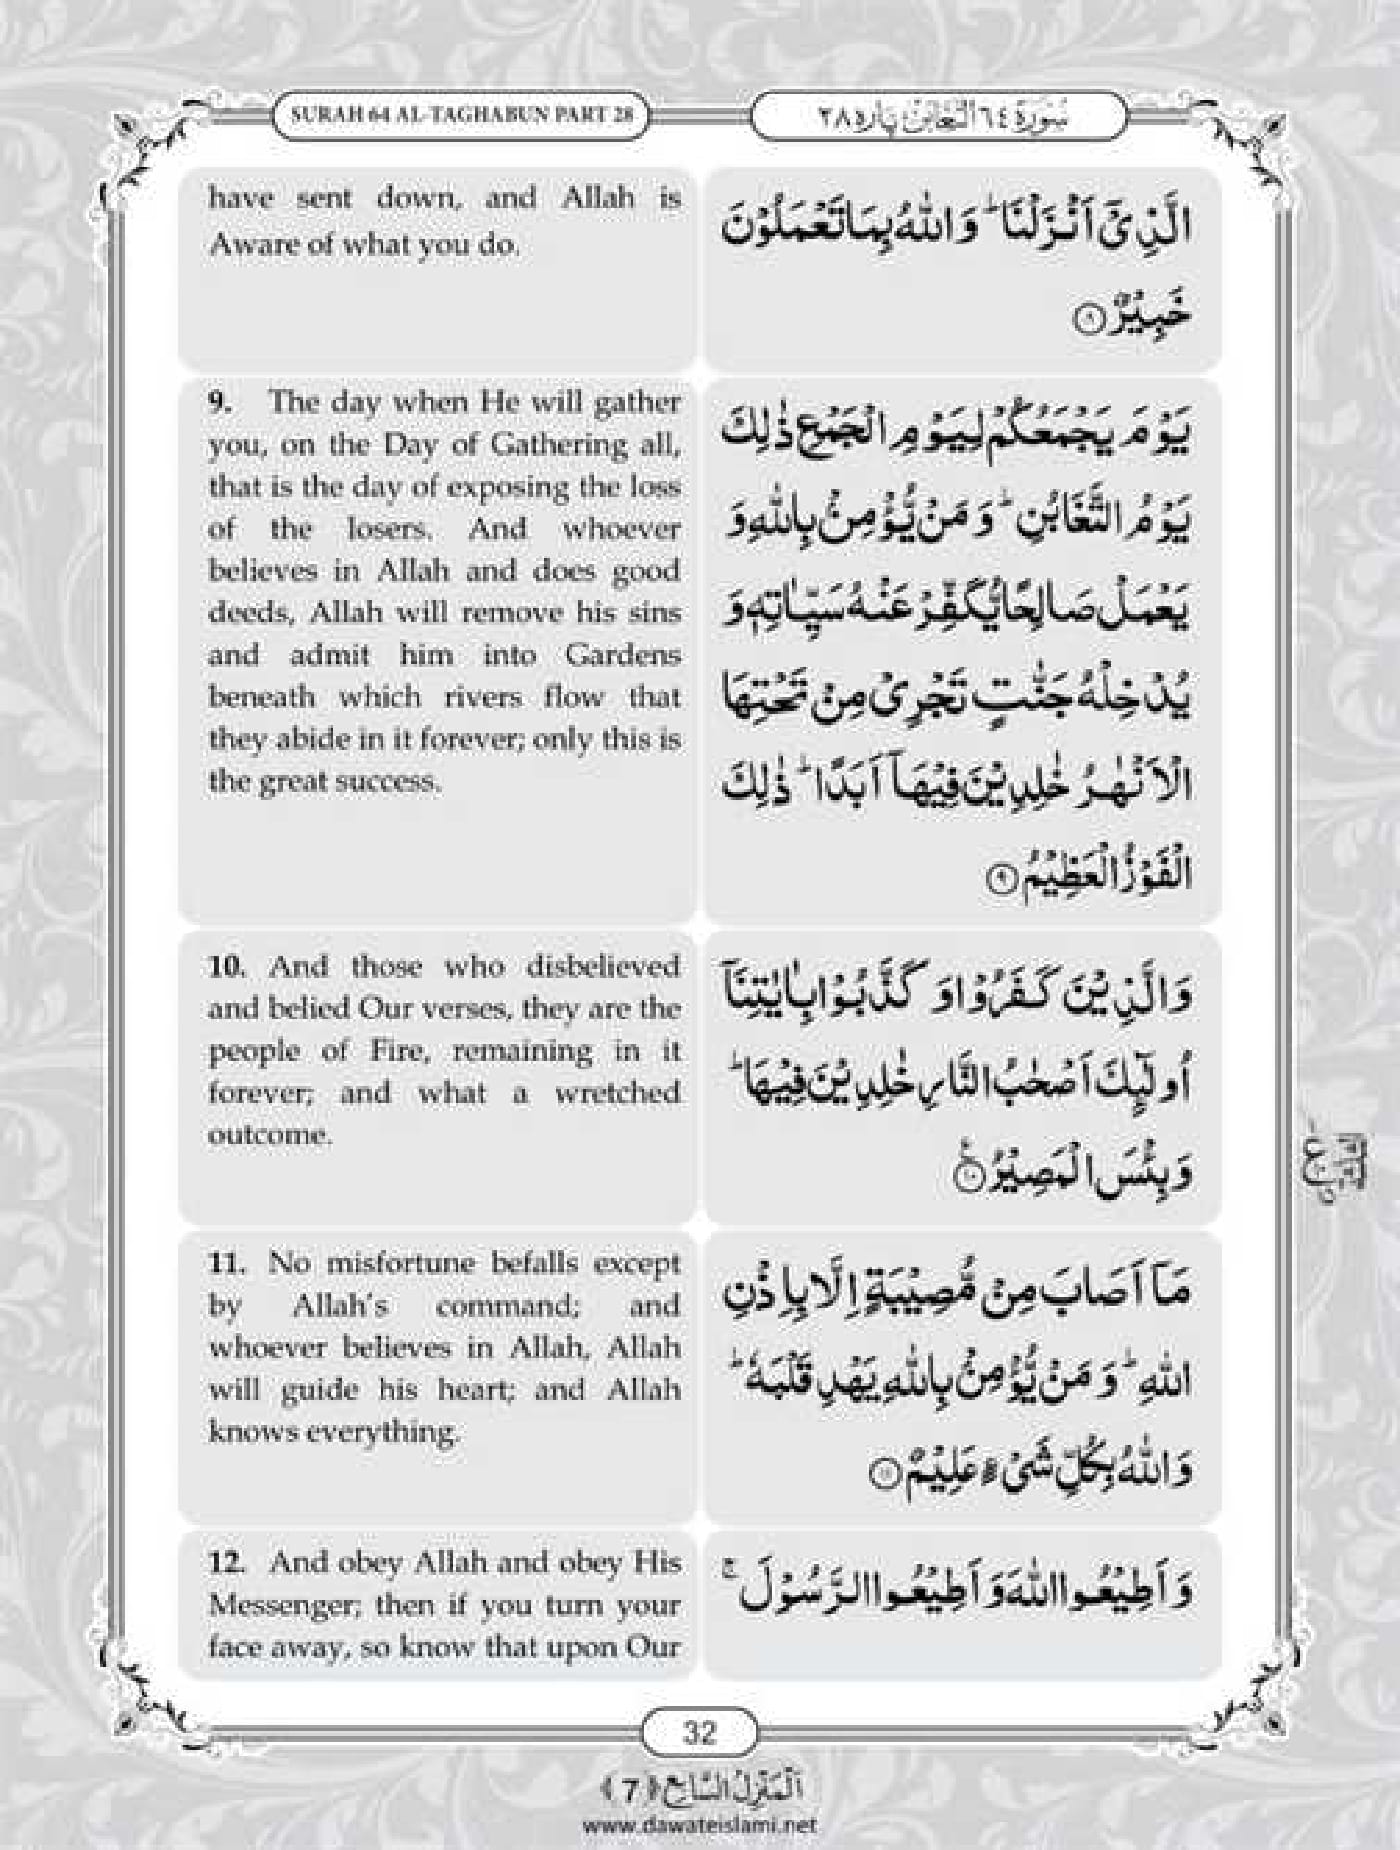 SURAH 64 AL-TAGHABUN PART 28
سُوْرَة ٦٤ التَّغَابُن: پاره ٢٨
have sent down, and Allah is
Aware of what you do.
الَّذِیْۤ اَنْزَلْنَا ؕ وَ اللّٰهُ بِمَا تَعْمَلُوْنَ
خَبِیْرٌ ۝۸
9. The day when He will gather
you, on the Day of Gathering all,
that is the day of exposing the loss
of the losers. And whoever
believes in Allah and does good
deeds, Allah will remove his sins
and admit him into Gardens
beneath which rivers flow that
they abide in it forever; only this is
the great success.
یَوْمَ یَجْمَعُكُمْ لِیَوْمِ الْجَمْعِ ذٰلِكَ
یَوْمُ التَّغَابُنِ ؕ وَ مَنْ یُّؤْمِنْۢ بِاللّٰهِ وَ
یَعْمَلْ صَالِحًا یُّكَفِّرْ عَنْهُ سَیِّاٰتِهٖ وَ
یُدْخِلْهُ جَنّٰتٍ تَجْرِیْ مِنْ تَحْتِهَا
الْاَنْهٰرُ خٰلِدِیْنَ فِیْهَاۤ اَبَدًا ؕ ذٰلِكَ
الْفَوْزُ الْعَظِیْمُ ۝۹
10. And those who disbelieved
and belied Our verses, they are the
people of Fire, remaining in it
forever; and what a wretched
outcome.
وَ الَّذِیْنَ كَفَرُوْا وَ كَذَّبُوْا بِاٰیٰتِنَاۤ
اُولٰٓىِٕكَ اَصْحٰبُ النَّارِ خٰلِدِیْنَ فِیْهَا ؕ
وَ بِئْسَ الْمَصِیْرُ ۝۱۰
11. No misfortune befalls except
by Allah's command; and
whoever believes in Allah, Allah
will guide his heart; and Allah
knows everything.
مَاۤ اَصَابَ مِنْ مُّصِیْبَةٍ اِلَّا بِاِذْنِ
اللّٰهِ ؕ وَ مَنْ یُّؤْمِنْۢ بِاللّٰهِ یَهْدِ قَلْبَهٗ ؕ
وَ اللّٰهُ بِكُلِّ شَیْءٍ عَلِیْمٌ ۝۱۱
12. And obey Allah and obey His
Messenger; then if you turn your
face away, so know that upon Our
وَ اَطِیْعُوا اللّٰهَ وَ اَطِیْعُوا الرَّسُوْلَ ۚ
32
اَلْمَنْزِلُ السَّابِع ﴿7﴾
www.dawateislami.net